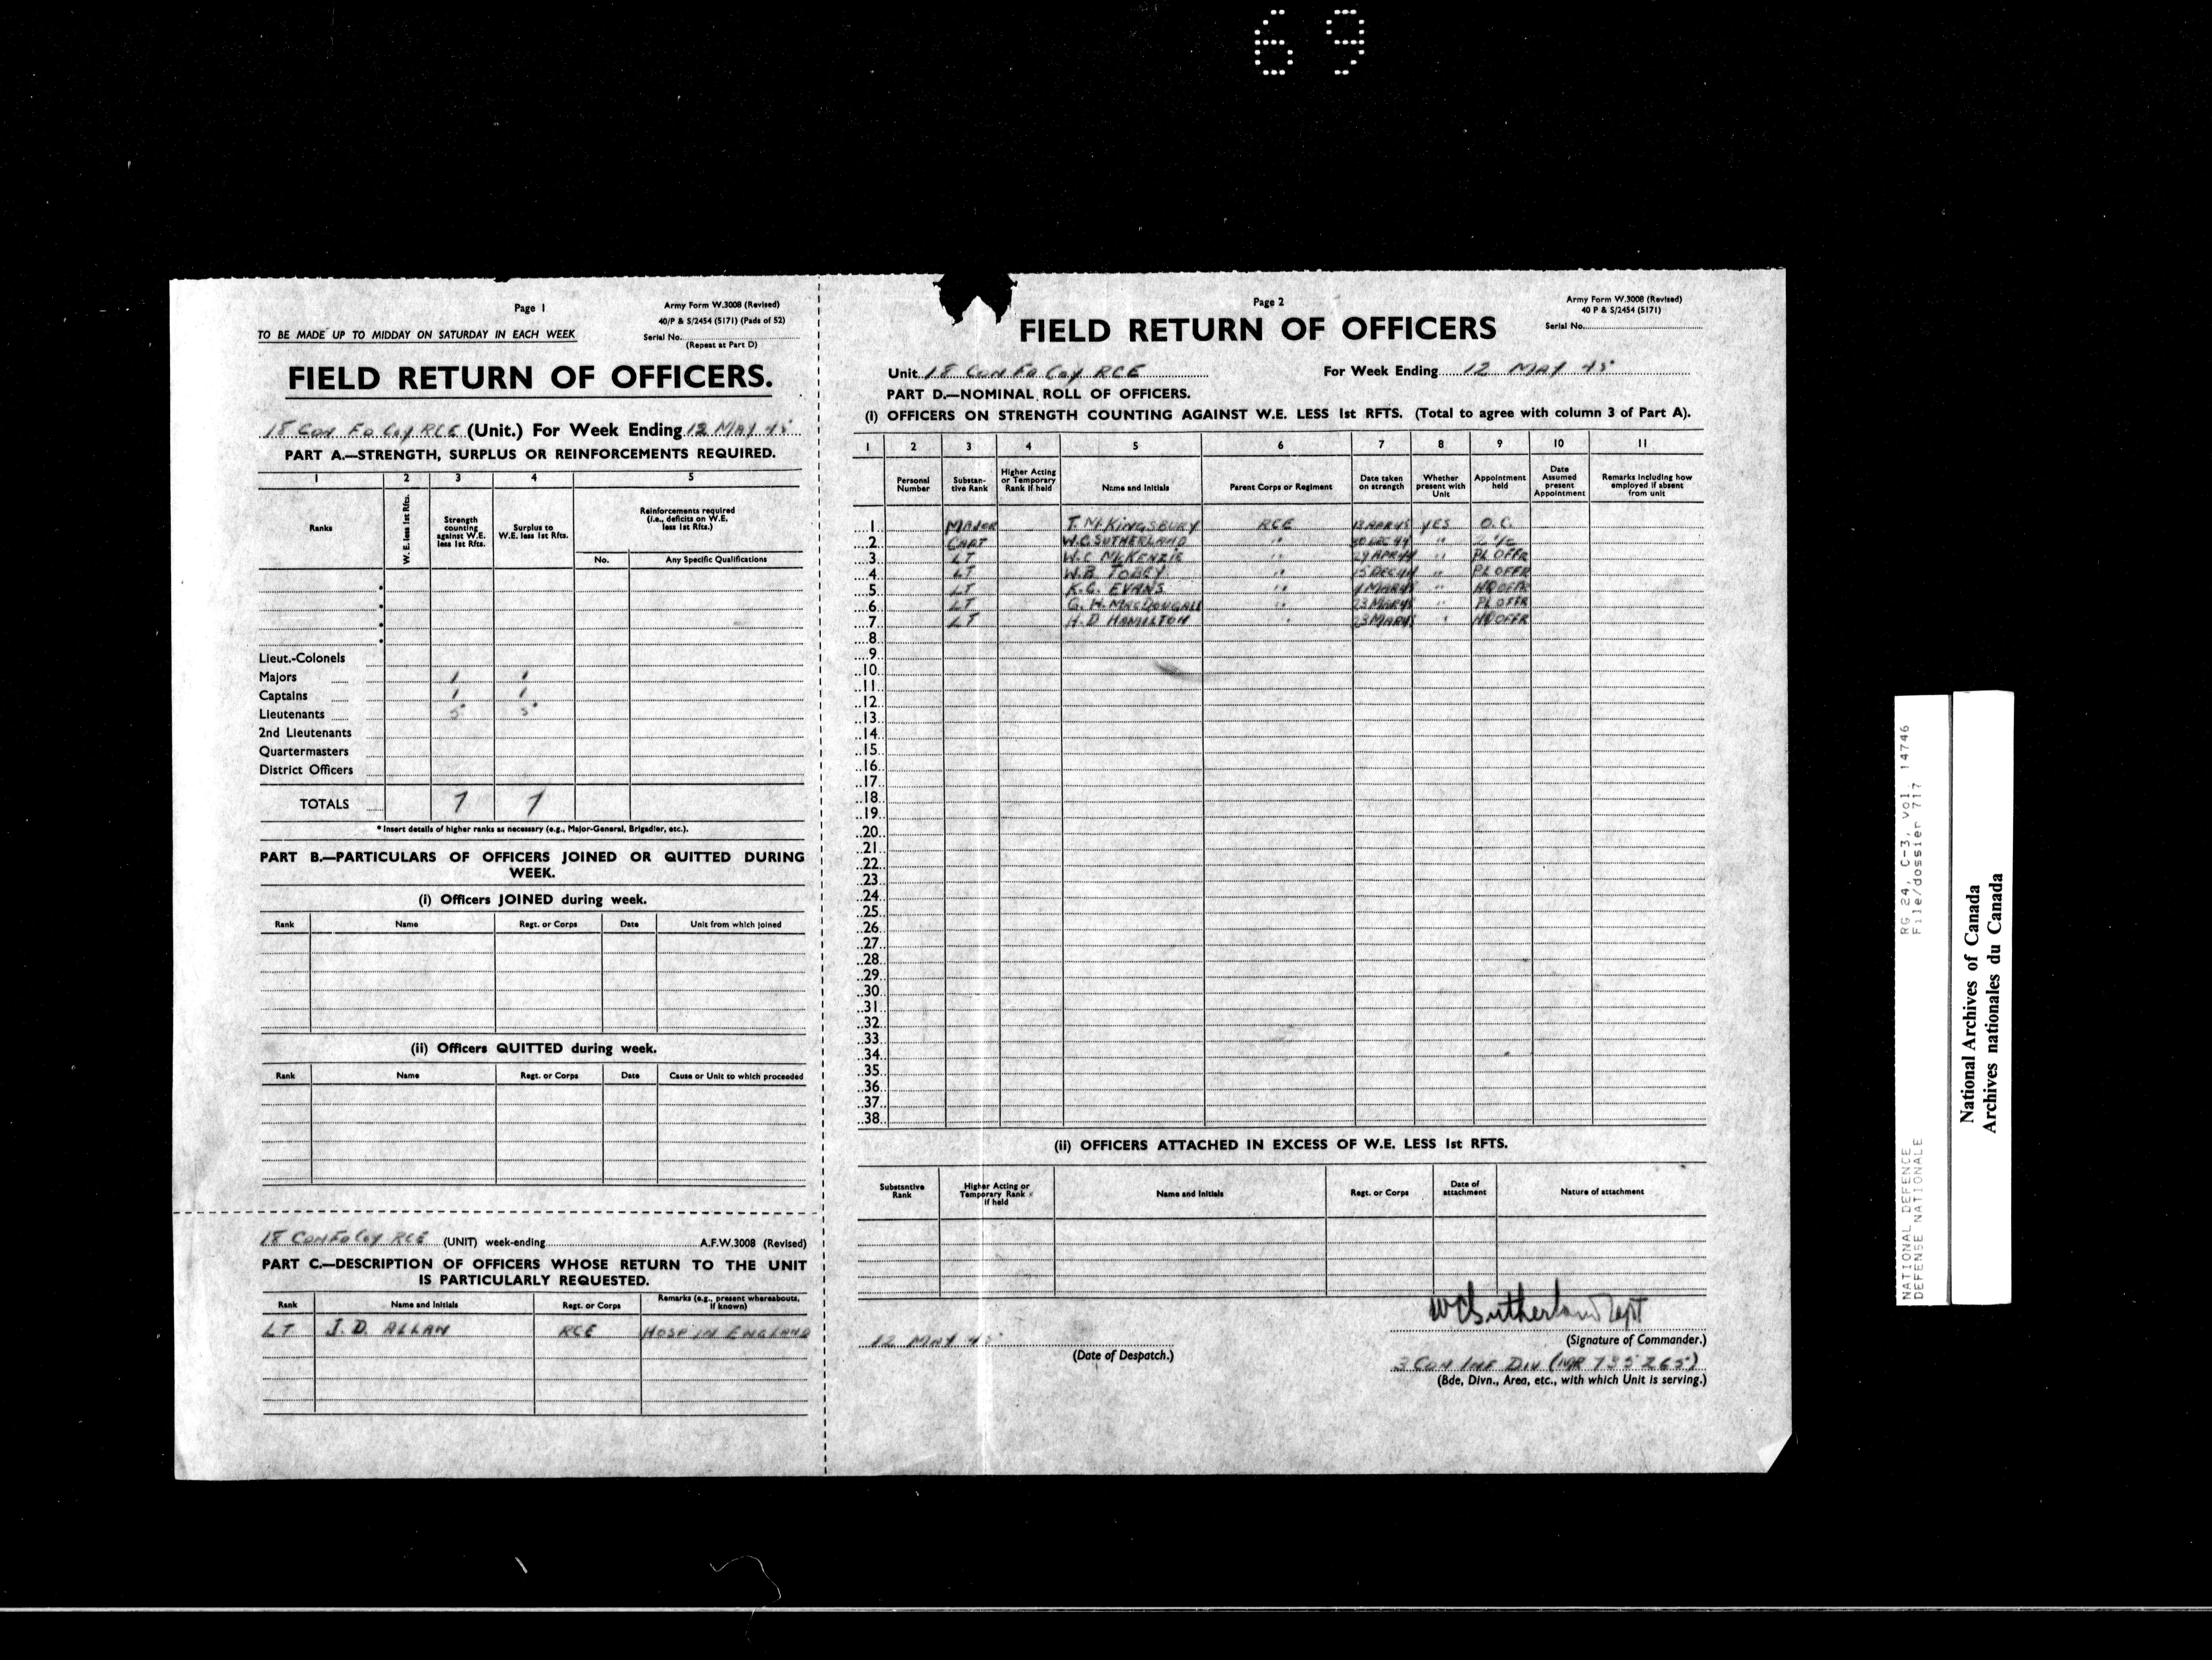 69
Page 1
Army Form W.3008 (Revised)
40/P & S/2454 (5171) (Pads of 52)
TO BE MADE UP TO MIDDAY ON SATURDAY IN EACH WEEK
Serial No.
(Repeat at Part D)
FIELD RETURN OF OFFICERS.
18 Can Fd Coy RCE (Unit.) For Week Ending 12 MAY 45
PART A.—STRENGTH, SURPLUS OR REINFORCEMENTS REQUIRED.
1 2 3 4 5
Ranks
W. E. less 1st Rfts.
Strength counting against W.E. less 1st Rfts.
Surplus to W.E. less 1st Rfts.
Reinforcements required (i.e., deficits on W.E. less 1st Rfts.)
No. Any Specific Qualifications
Lieut.-Colonels
Majors 1 1
Captains 1 1
Lieutenants 5 5
2nd Lieutenants
Quartermasters
District Officers
TOTALS 7 7
* Insert details of higher ranks as necessary (e.g., Major-General, Brigadier, etc.).
PART B.—PARTICULARS OF OFFICERS JOINED OR QUITTED DURING
WEEK.
(i) Officers JOINED during week.
Rank Name Regt. or Corps Date Unit from which joined
(ii) Officers QUITTED during week.
Rank Name Regt. or Corps Date Cause or Unit to which proceeded
18 Can Fd Coy RCE (UNIT) week-ending A.F.W.3008 (Revised)
PART C.—DESCRIPTION OF OFFICERS WHOSE RETURN TO THE UNIT
IS PARTICULARLY REQUESTED.
Rank Name and Initials Regt. or Corps Remarks (e.g., present whereabouts, if known)
LT J. D. ALLAN RCE HOSP IN ENGLAND
Page 2
Army Form W.3008 (Revised)
40 P & S/2454 (5171)
Serial No.
FIELD RETURN OF OFFICERS
Unit 18 Can Fd Coy RCE For Week Ending 12 MAY 45
PART D.—NOMINAL ROLL OF OFFICERS.
(i) OFFICERS ON STRENGTH COUNTING AGAINST W.E. LESS 1st RFTS. (Total to agree with column 3 of Part A).
1 2 3 4 5 6 7 8 9 10 11
Personal Number
Substantive Rank
Higher Acting or Temporary Rank if held
Name and Initials
Parent Corps or Regiment
Date taken on strength
Whether present with Unit
Appointment held
Date Assumed present Appointment
Remarks including how employed if absent from unit
1 MAJOR T. M. KINGSBURY RCE 13 APR 45 YES O.C.
2 CAPT W.C. SUTHERLAND " 30 DEC 44 " 2 i/c
3 LT W.C. MCKENZIE " 29 APR 44 " PL OFFR
4 LT W.B. TOBEY " 15 DEC 44 " PL OFFR
5 LT K.C. EVANS " 1 MAR 45 " HQ OFFR
6 LT G. H. MACDOUGALL " 23 MAR 45 " PL OFFR
7 LT H.D HAMILTON " 23 MAR 45 " HQ OFFR
8
9
10
11
12
13
14
15
16
17
18
19
20
21
22
23
24
25
26
27
28
29
30
31
32
33
34
35
36
37
38
(ii) OFFICERS ATTACHED IN EXCESS OF W.E. LESS 1st RFTS.
Substantive Rank
Higher Acting or Temporary Rank if held
Name and Initials
Regt. or Corps
Date of attachment
Nature of attachment
WCSutherland Capt
(Signature of Commander.)
12 MAY 45
(Date of Despatch.)
3 CDN INF DIV (MR 735265)
(Bde, Divn., Area, etc., with which Unit is serving.)
NATIONAL DEFENCE RG 24, C-3, vol. 14746
DEFENSE NATIONALE File/dossier 717
National Archives of Canada
Archives nationales du Canada